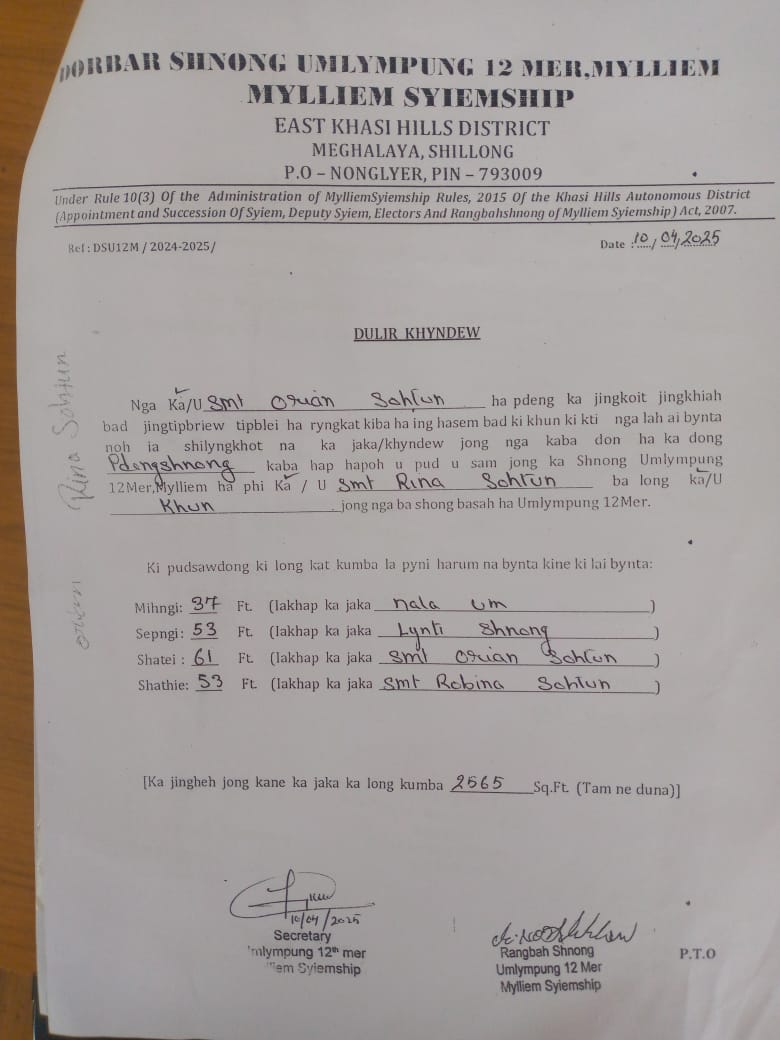 DORBAR SHNONG UMLYMPUNG 12 MER,MYLLIEM
MYLLIEM SYIEMSHIP
EAST KHASI HILLS DISTRICT
MEGHALAYA, SHILLONG
P.O – NONGLYER, PIN – 793009
Under Rule 10(3) Of the Administration of MylliemSyiemship Rules, 2015 Of the Khasi Hills Autonomous District
(Appointment and Succession Of Syiem, Deputy Syiem, Electors And Rangbahshnong of Mylliem Syiemship) Act, 2007.
Ref : DSU12M / 2024-2025/
Date : 10/04/2025
DULIR KHYNDEW
Nga Ka/U Smt Orian Sohtun ha pdeng ka jingkoit jingkhiah
bad jingtipbriew tipblei ha ryngkat kiba ha ing hasem bad ki khun ki kti nga lah ai bynta
noh ia shilyngkhot na ka jaka/khyndew jong nga kaba don ha ka dong
Pdengshnong kaba hap hapoh u pud u sam jong ka Shnong Umlympung
12Mer,Mylliem ha phi Ka / U Smt Rina Sohtun ba long ka/U
Khun jong nga ba shong basah ha Umlympung 12Mer.
Ki pudsawdong ki long kat kumba la pyni harum na bynta kine ki lai bynta:
Mihngi: 37 Ft. (lakhap ka jaka nala um)
Sepngi: 53 Ft. (lakhap ka jaka Lynti Shnong)
Shatei : 61 Ft. (lakhap ka jaka Smt Orian Sohtun)
Shathie: 53 Ft. (lakhap ka jaka Smt Robina Sohtun)
[Ka jingheh jong kane ka jaka ka long kumba 2565 Sq.Ft. (Tam ne duna)]
Rina Sohtun
10/04/2025
Secretary
mlympung 12th mer
iem Syiemship
Rangbah Shnong
Umlympung 12 Mer
Mylliem Syiemship
P.T.O